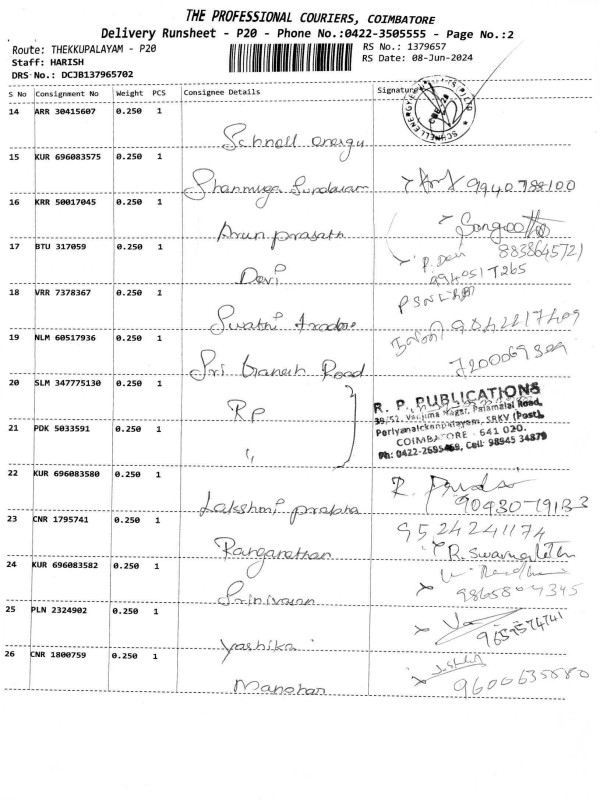 THE PROFESSIONAL COURIERS, COIMBATORE
Delivery Runsheet - P20 - Phone No.:0422-3505555 - Page No.:2
Route: THEKKUPALAYAM - P20
RS No.: 1379657
Staff: HARISH
RS Date: 08-Jun-2024
DRS No.: DCJB137965702
S No Consignment No Weight PCS Consignee Details Signature
14 ARR 30415607 0.250 1
Schnell energy
15 KUR 696083575 0.250 1
Shanmuga Sundaram 9940788100
16 KRR 50017045 0.250 1
Arun prasath Sangeetha
8838645721
17 BTU 317059 0.250 1
Devi P. Devi
9940517265
18 VRR 7378367 0.250 1
Swathi
19 NLM 60517936 0.250 1
Sri Ganesh Road
20 SLM 347775130 0.250 1
RP
R. P. PUBLICATIONS
39/52, Nagar, Palamalai Road,
21 PDK 5033591 0.250 1
Periyanaickenpalayam, SRKV (Post),
COIMBATORE - 641 020.
Ph: 0422-2695469, Cell: 98945 34879
"
22 KUR 696083580 0.250 1
Lakshmi prabha R.
90430-79133
23 CNR 1795741 0.250 1
9524241174
Ranganathan R. Swarnalatha
24 KUR 696083582 0.250 1
Srinivasan
25 PLN 2324902 0.250 1
Yashika 9659574741
26 CNR 1800759 0.250 1
Manohar 9600635880